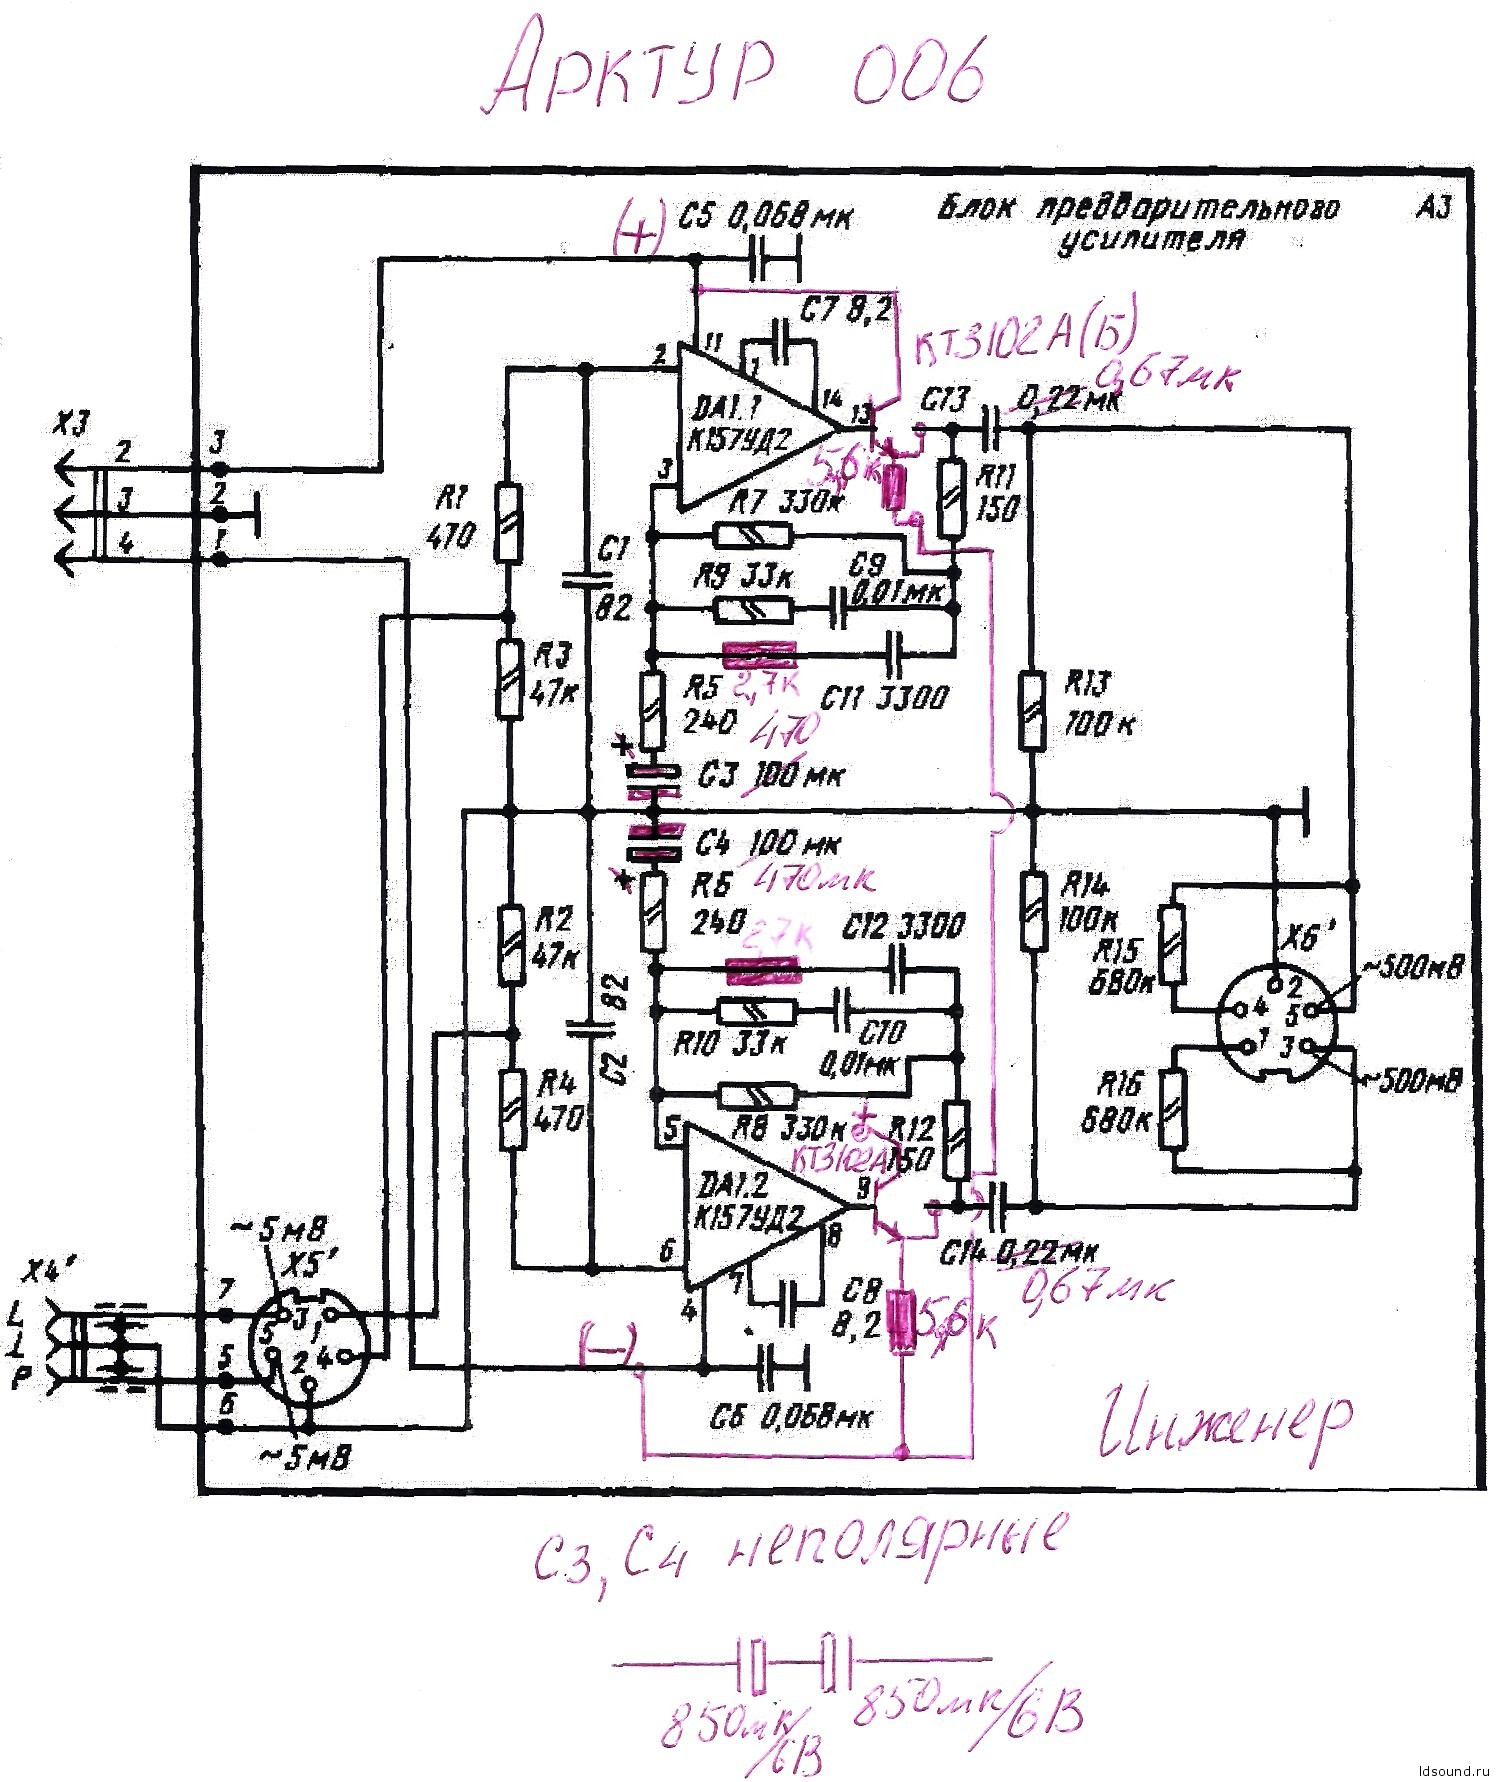 АРКТУР 006
Блок предварительного
усилителя
А3
(+)
С5 0,068 мк
С7 8,2
КТ3102А(Б)
0,67мк
С13 0,22 мк
2
11
1
14
13
3
DA1.1
К157УД2
5,6к
X3
2
3
4
3
2
1
R1
470
R11
150
R7 330к
R9 33к
С9
0,01мк
С1
82
R3
47к
R5
240
2,7к
С11 3300
R13
100к
470
+
С3 100 мк
С4 100 мк
470мк
+
R6
240
2,7к
С12 3300
R14
100к
R15
680к
X6'
2
4
5
1
3
~500мВ
~500мВ
R2
47к
С2 82
R10 33к
С10
0,01мк
R4
470
R16
680к
R8 330к
+
R12
150
КТ3102А
5
9
DA1.2
К157УД2
6
8
7
4
С14 0,22мк
0,67мк
С8
8,2
5,6к
(−)
С6 0,068мк
~5мВ
X5'
X4'
L
⊥
P
7
5
6
3
1
5
2
4
~5мВ
Инженер
С3, С4 неполярные
850мк/6В
850мк/6В
ldsound.ru